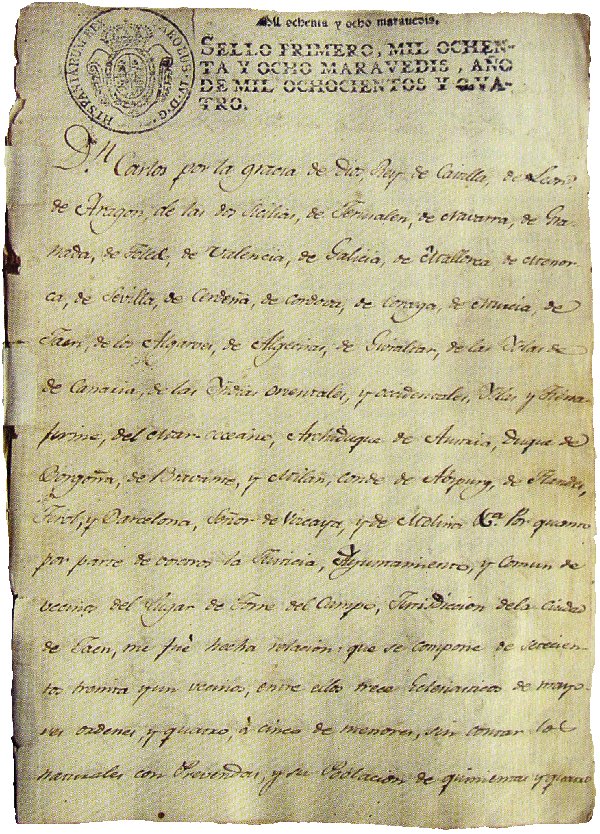 Mil ochenta y ocho maravedis.
HISPANIAR.REX CAROLUS.IV.D.G.
SELLO PRIMERO, MIL OCHEN-
TA Y OCHO MARAVEDIS, AÑO
DE MIL OCHOCIENTOS Y QVA-
TRO.
Dn Carlos por la gracia de Dios, Rey de Castilla, de Leon,
de Aragon, de las dos Sicilias, de Jerusalen, de Navarra, de Gra-
nada, de Toledo, de Valencia, de Galicia, de Mallorca de Menor-
ca, de Sevilla, de Cerdeña, de Cordova, de Corzega, de Murcia, de
Jaen, de los Algarves, de Algeciras, de Gibraltar, de las Yslas de
de Canaria, de las Yndias orientales, y occidentales, Yslas y Tierra
firme, del Mar occeano, Archiduque de Austria, Duque de
Borgoña, de Bravante, y Milan, conde de Abspurg, de Flandes,
Tirol, y Barcelona, Señor de Vizcaya, y de Molina &a. Por quanto
por parte de vosotros la Justicia, Ayuntamiento, y Comun de
vecinos del Lugar de Torre del Campo, Jurisdiccion de la Ciudad
de Jaen, me fue hecha relacion: que se compone de setecien-
tos treinta y un vecinos, entre ellos trece Eclesiasticos de mayo-
res ordenes, y quatro, ò cinco de menores, sin contar los
naturales con Prevendas, y su Poblacion de quinientas y quatro